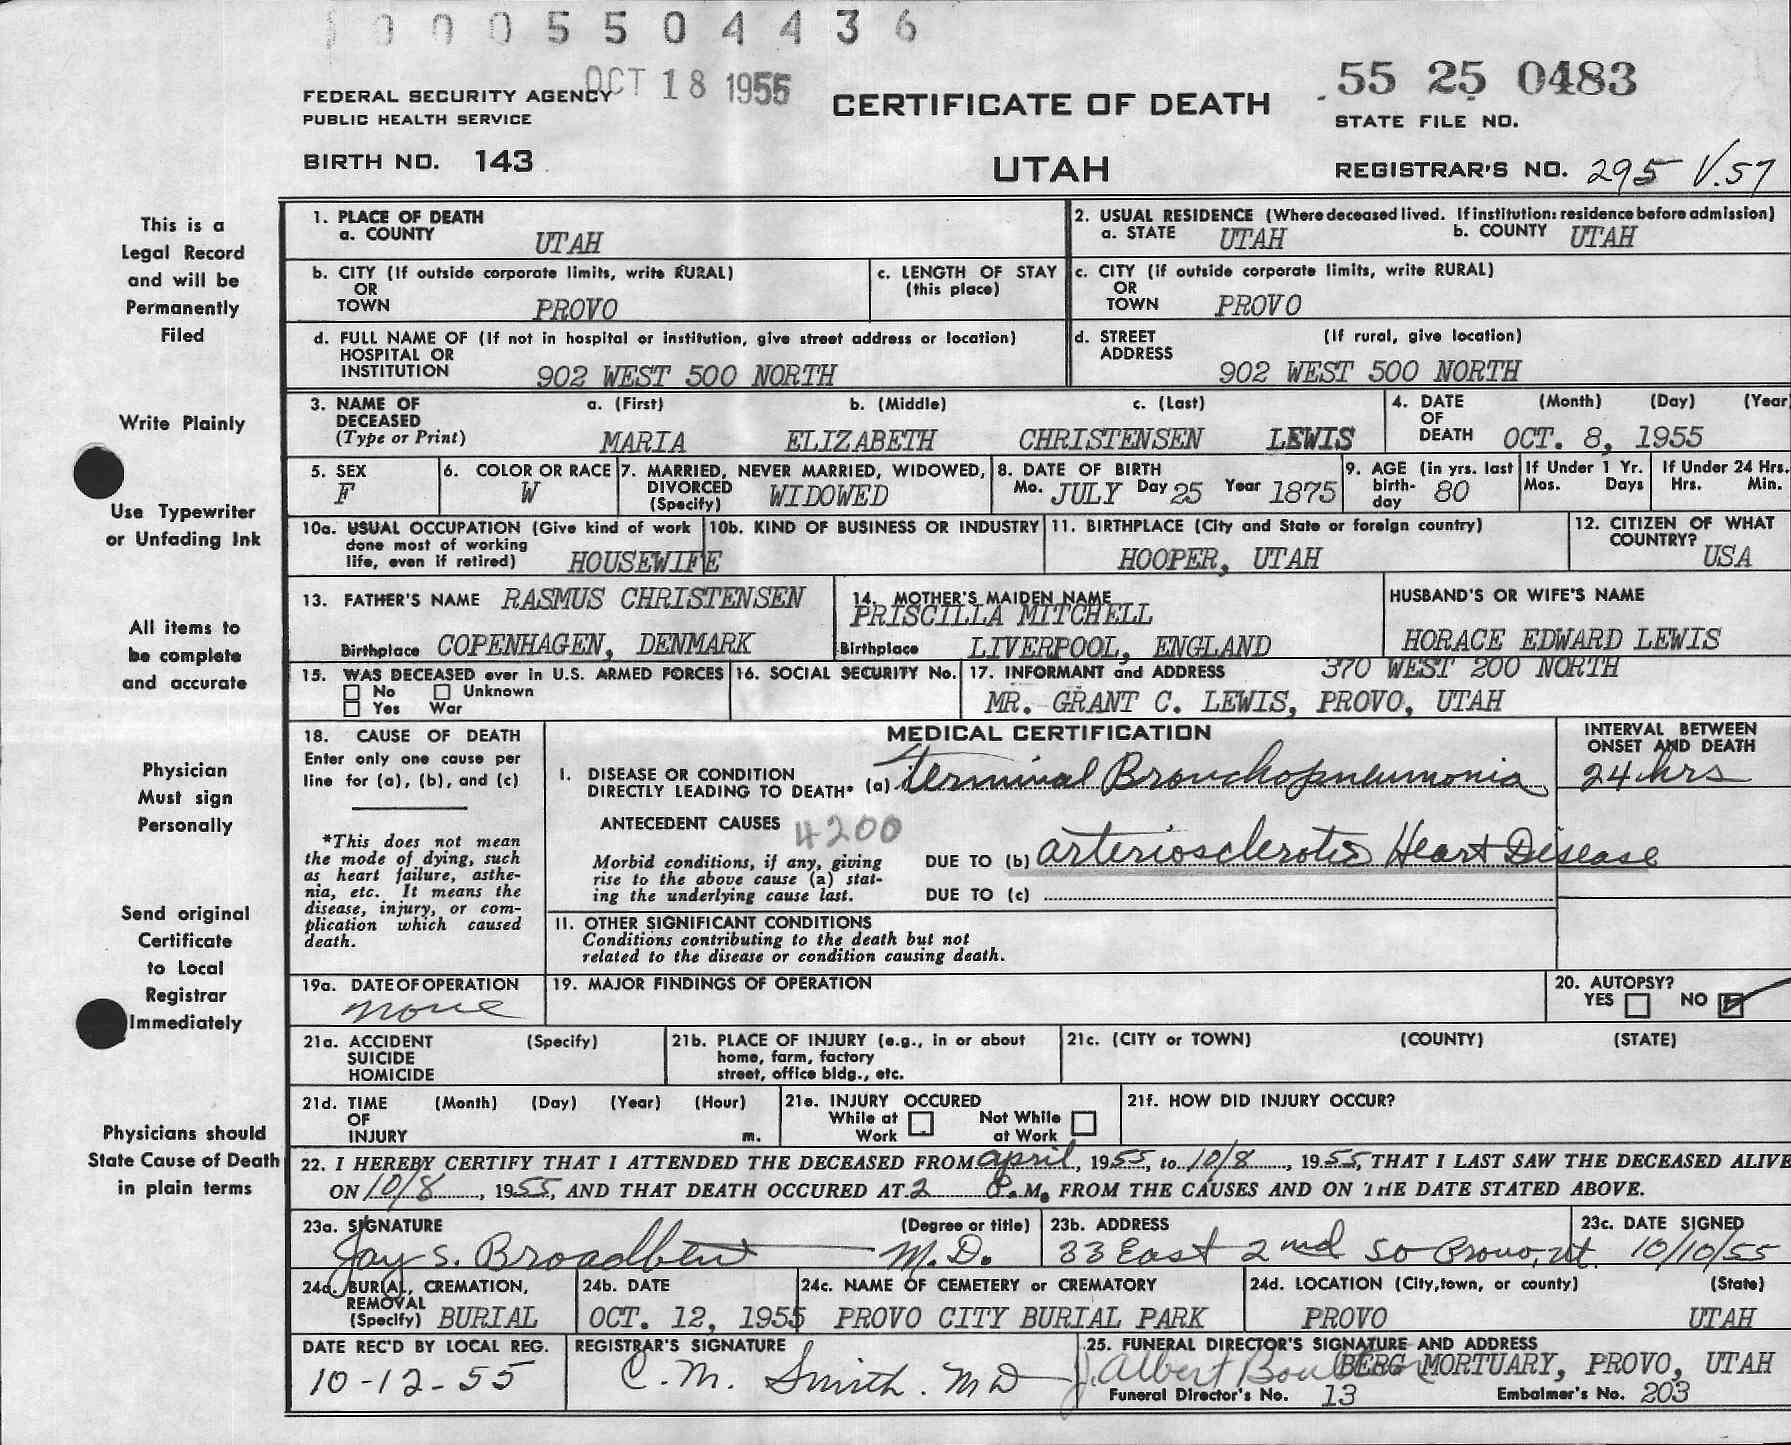 0005504436
OCT 18 1955
55 25 0483
FEDERAL SECURITY AGENCY
PUBLIC HEALTH SERVICE
CERTIFICATE OF DEATH
STATE FILE NO.
BIRTH NO. 143
UTAH
REGISTRAR'S NO. 295 V.57
This is a
Legal Record
and will be
Permanently
Filed
Write Plainly
Use Typewriter
or Unfading Ink
All items to
be complete
and accurate
Physician
Must sign
Personally
Send original
Certificate
to Local
Registrar
Immediately
Physicians should
State Cause of Death
in plain terms
1. PLACE OF DEATH
a. COUNTY UTAH
2. USUAL RESIDENCE (Where deceased lived. If institution: residence before admission)
a. STATE UTAH b. COUNTY UTAH
b. CITY (If outside corporate limits, write RURAL)
OR
TOWN PROVO
c. LENGTH OF STAY
(this place)
c. CITY (if outside corporate limits, write RURAL)
OR
TOWN PROVO
d. FULL NAME OF (If not in hospital or institution, give street address or location)
HOSPITAL OR
INSTITUTION 902 WEST 500 NORTH
d. STREET (If rural, give location)
ADDRESS
902 WEST 500 NORTH
3. NAME OF a. (First) b. (Middle) c. (Last)
DECEASED
(Type or Print) MARIA ELIZABETH CHRISTENSEN LEWIS
4. DATE (Month) (Day) (Year
OF
DEATH OCT. 8, 1955
5. SEX
F
6. COLOR OR RACE
W
7. MARRIED, NEVER MARRIED, WIDOWED,
DIVORCED
(Specify) WIDOWED
8. DATE OF BIRTH
Mo. JULY Day 25 Year 1875
9. AGE (in yrs. last
birth-
day 80
If Under 1 Yr.
Mos. Days
If Under 24 Hrs.
Hrs. Min.
10a. USUAL OCCUPATION (Give kind of work
done most of working
life, even if retired) HOUSEWIFE
10b. KIND OF BUSINESS OR INDUSTRY
11. BIRTHPLACE (City and State or foreign country)
HOOPER, UTAH
12. CITIZEN OF WHAT
COUNTRY?
USA
13. FATHER'S NAME RASMUS CHRISTENSEN
Birthplace COPENHAGEN, DENMARK
14. MOTHER'S MAIDEN NAME
PRISCILLA MITCHELL
Birthplace LIVERPOOL, ENGLAND
HUSBAND'S OR WIFE'S NAME
HORACE EDWARD LEWIS
15. WAS DECEASED ever in U.S. ARMED FORCES
No Unknown
Yes War
16. SOCIAL SECURITY No.
17. INFORMANT and ADDRESS 370 WEST 200 NORTH
MR. GRANT C. LEWIS, PROVO, UTAH
18. CAUSE OF DEATH
Enter only one cause per
line for (a), (b), and (c)
*This does not mean
the mode of dying, such
as heart failure, asthe-
nia, etc. It means the
disease, injury, or com-
plication which caused
death.
MEDICAL CERTIFICATION
INTERVAL BETWEEN
ONSET AND DEATH
I. DISEASE OR CONDITION
DIRECTLY LEADING TO DEATH* (a) terminal Bronchopneumonia 24 hrs
ANTECEDENT CAUSES 4200
Morbid conditions, if any, giving
rise to the above cause (a) stat-
ing the underlying cause last.
DUE TO (b) arteriosclerotic Heart Disease
DUE TO (c)
II. OTHER SIGNIFICANT CONDITIONS
Conditions contributing to the death but not
related to the disease or condition causing death.
19a. DATE OF OPERATION
none
19. MAJOR FINDINGS OF OPERATION
20. AUTOPSY?
YES NO
21a. ACCIDENT (Specify)
SUICIDE
HOMICIDE
21b. PLACE OF INJURY (e.g., in or about
home, farm, factory
street, office bldg., etc.
21c. (CITY or TOWN) (COUNTY) (STATE)
21d. TIME (Month) (Day) (Year) (Hour)
OF
INJURY m.
21e. INJURY OCCURED
While at Not While
Work at Work
21f. HOW DID INJURY OCCUR?
22. I HEREBY CERTIFY THAT I ATTENDED THE DECEASED FROM april, 1955, to 10/8, 1955, THAT I LAST SAW THE DECEASED ALIVE
ON 10/8, 1955, AND THAT DEATH OCCURED AT 2 P.M. FROM THE CAUSES AND ON THE DATE STATED ABOVE.
23a. SIGNATURE (Degree or title)
Jay S. Broadbent M.D.
23b. ADDRESS
33 East 2nd So Provo, ut.
23c. DATE SIGNED
10/10/55
24a. BURIAL, CREMATION,
REMOVAL
(Specify) BURIAL
24b. DATE
OCT. 12, 1955
24c. NAME OF CEMETERY or CREMATORY
PROVO CITY BURIAL PARK
24d. LOCATION (City, town, or county) (State)
PROVO UTAH
DATE REC'D BY LOCAL REG.
10-12-55
REGISTRAR'S SIGNATURE
C. M. Smith. MD
25. FUNERAL DIRECTOR'S SIGNATURE AND ADDRESS
J. Albert BERG MORTUARY, PROVO, UTAH
Funeral Director's No. 13 Embalmer's No. 203